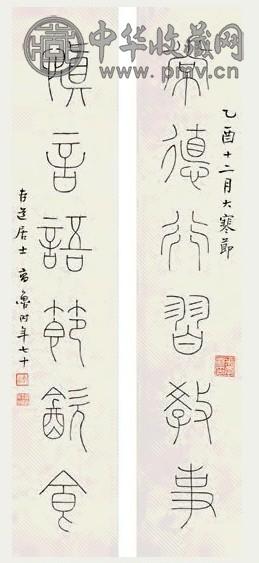 中华收藏网
www.pmv.cn
常德行習教事
乙酉十二月大寒節
慎言語節飲食
居士 高魯时年七十